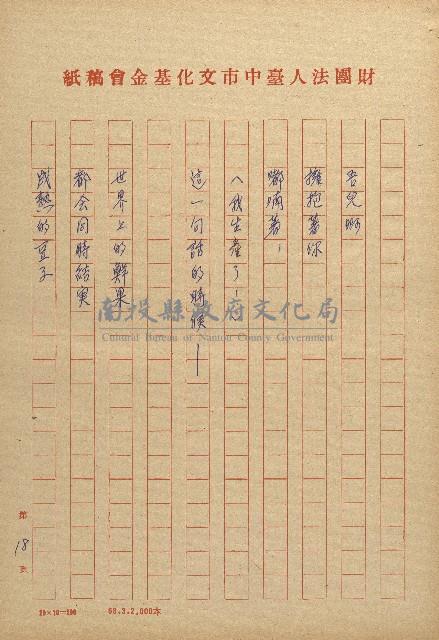 財團法人臺中市文化基金會稿紙
吾兒啊
擁抱著你
嘟喃著，
〈我生產了！〉
這一句話的時候——
世界上的鮮果
都会同時結実
成熟的豆子
南投縣政府文化局
Cultural Bureau of Nantou County Government
第18頁
20×10=200
68.3.2,000本